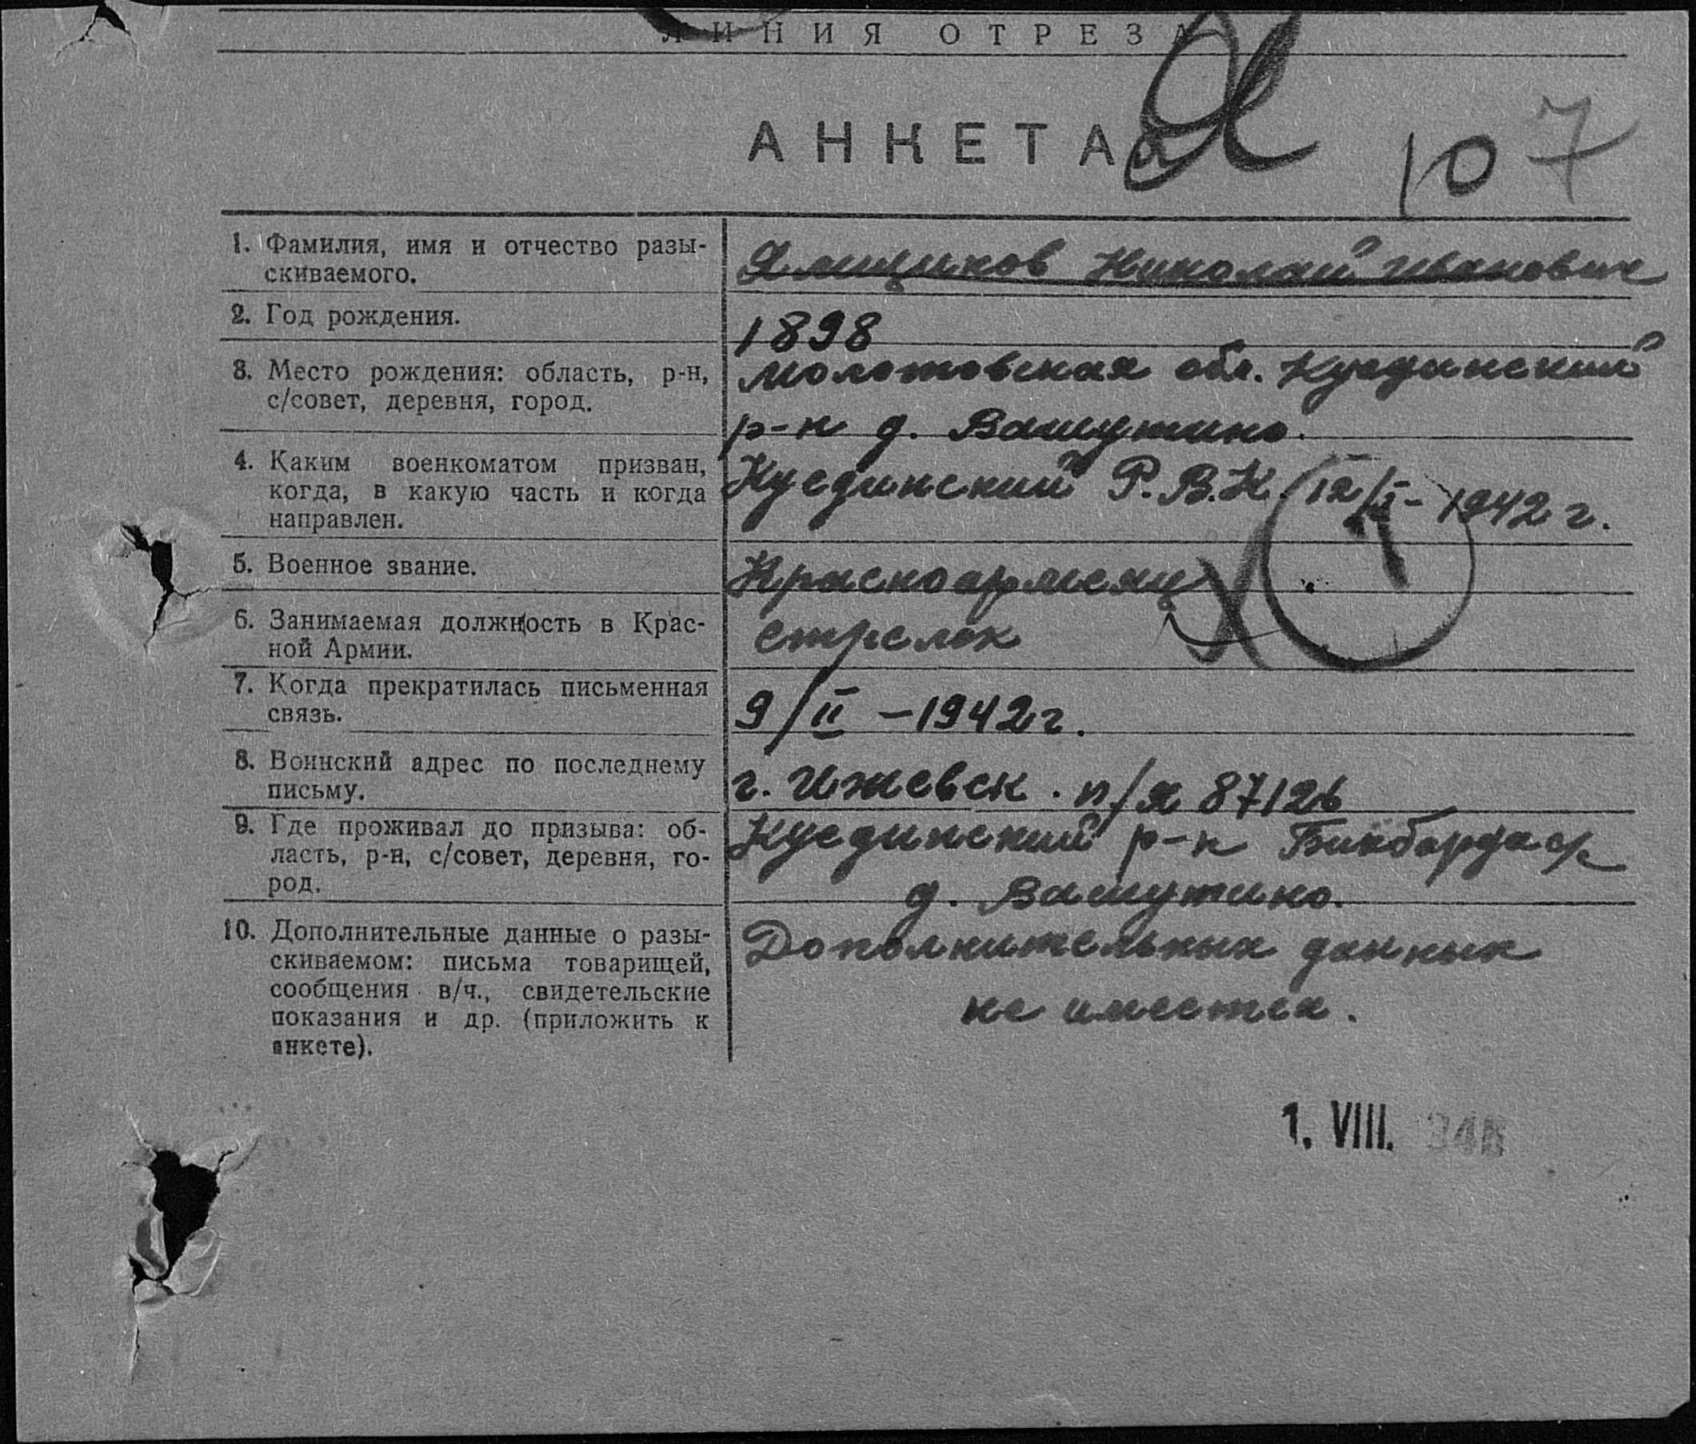 ЛИНИЯ ОТРЕЗА
АНКЕТА Я 107
1. Фамилия, имя и отчество разы-
скиваемого.
Ямщиков Николай Иванович
2. Год рождения.
1898
3. Место рождения: область, р-н,
с/совет, деревня, город.
Молотовская обл. Куединский
р-н д. Вашутино.
4. Каким военкоматом призван,
когда, в какую часть и когда
направлен.
Куединский Р.В.К. 12/I-1942 г.
5. Военное звание.
Красноармеец
6. Занимаемая должность в Крас-
ной Армии.
стрелок
7. Когда прекратилась письменная
связь.
9/II -1942 г.
8. Воинский адрес по последнему
письму.
г. Ижевск. п/я 87126
9. Где проживал до призыва: об-
ласть, р-н, с/совет, деревня, го-
род.
Куединский р-н Бикбарда с/с
д. Вашутино.
10. Дополнительные данные о разы-
скиваемом: письма товарищей,
сообщения в/ч., свидетельские
показания и др. (приложить к
анкете).
Дополнительных данных
не имеется.
1. VIII.